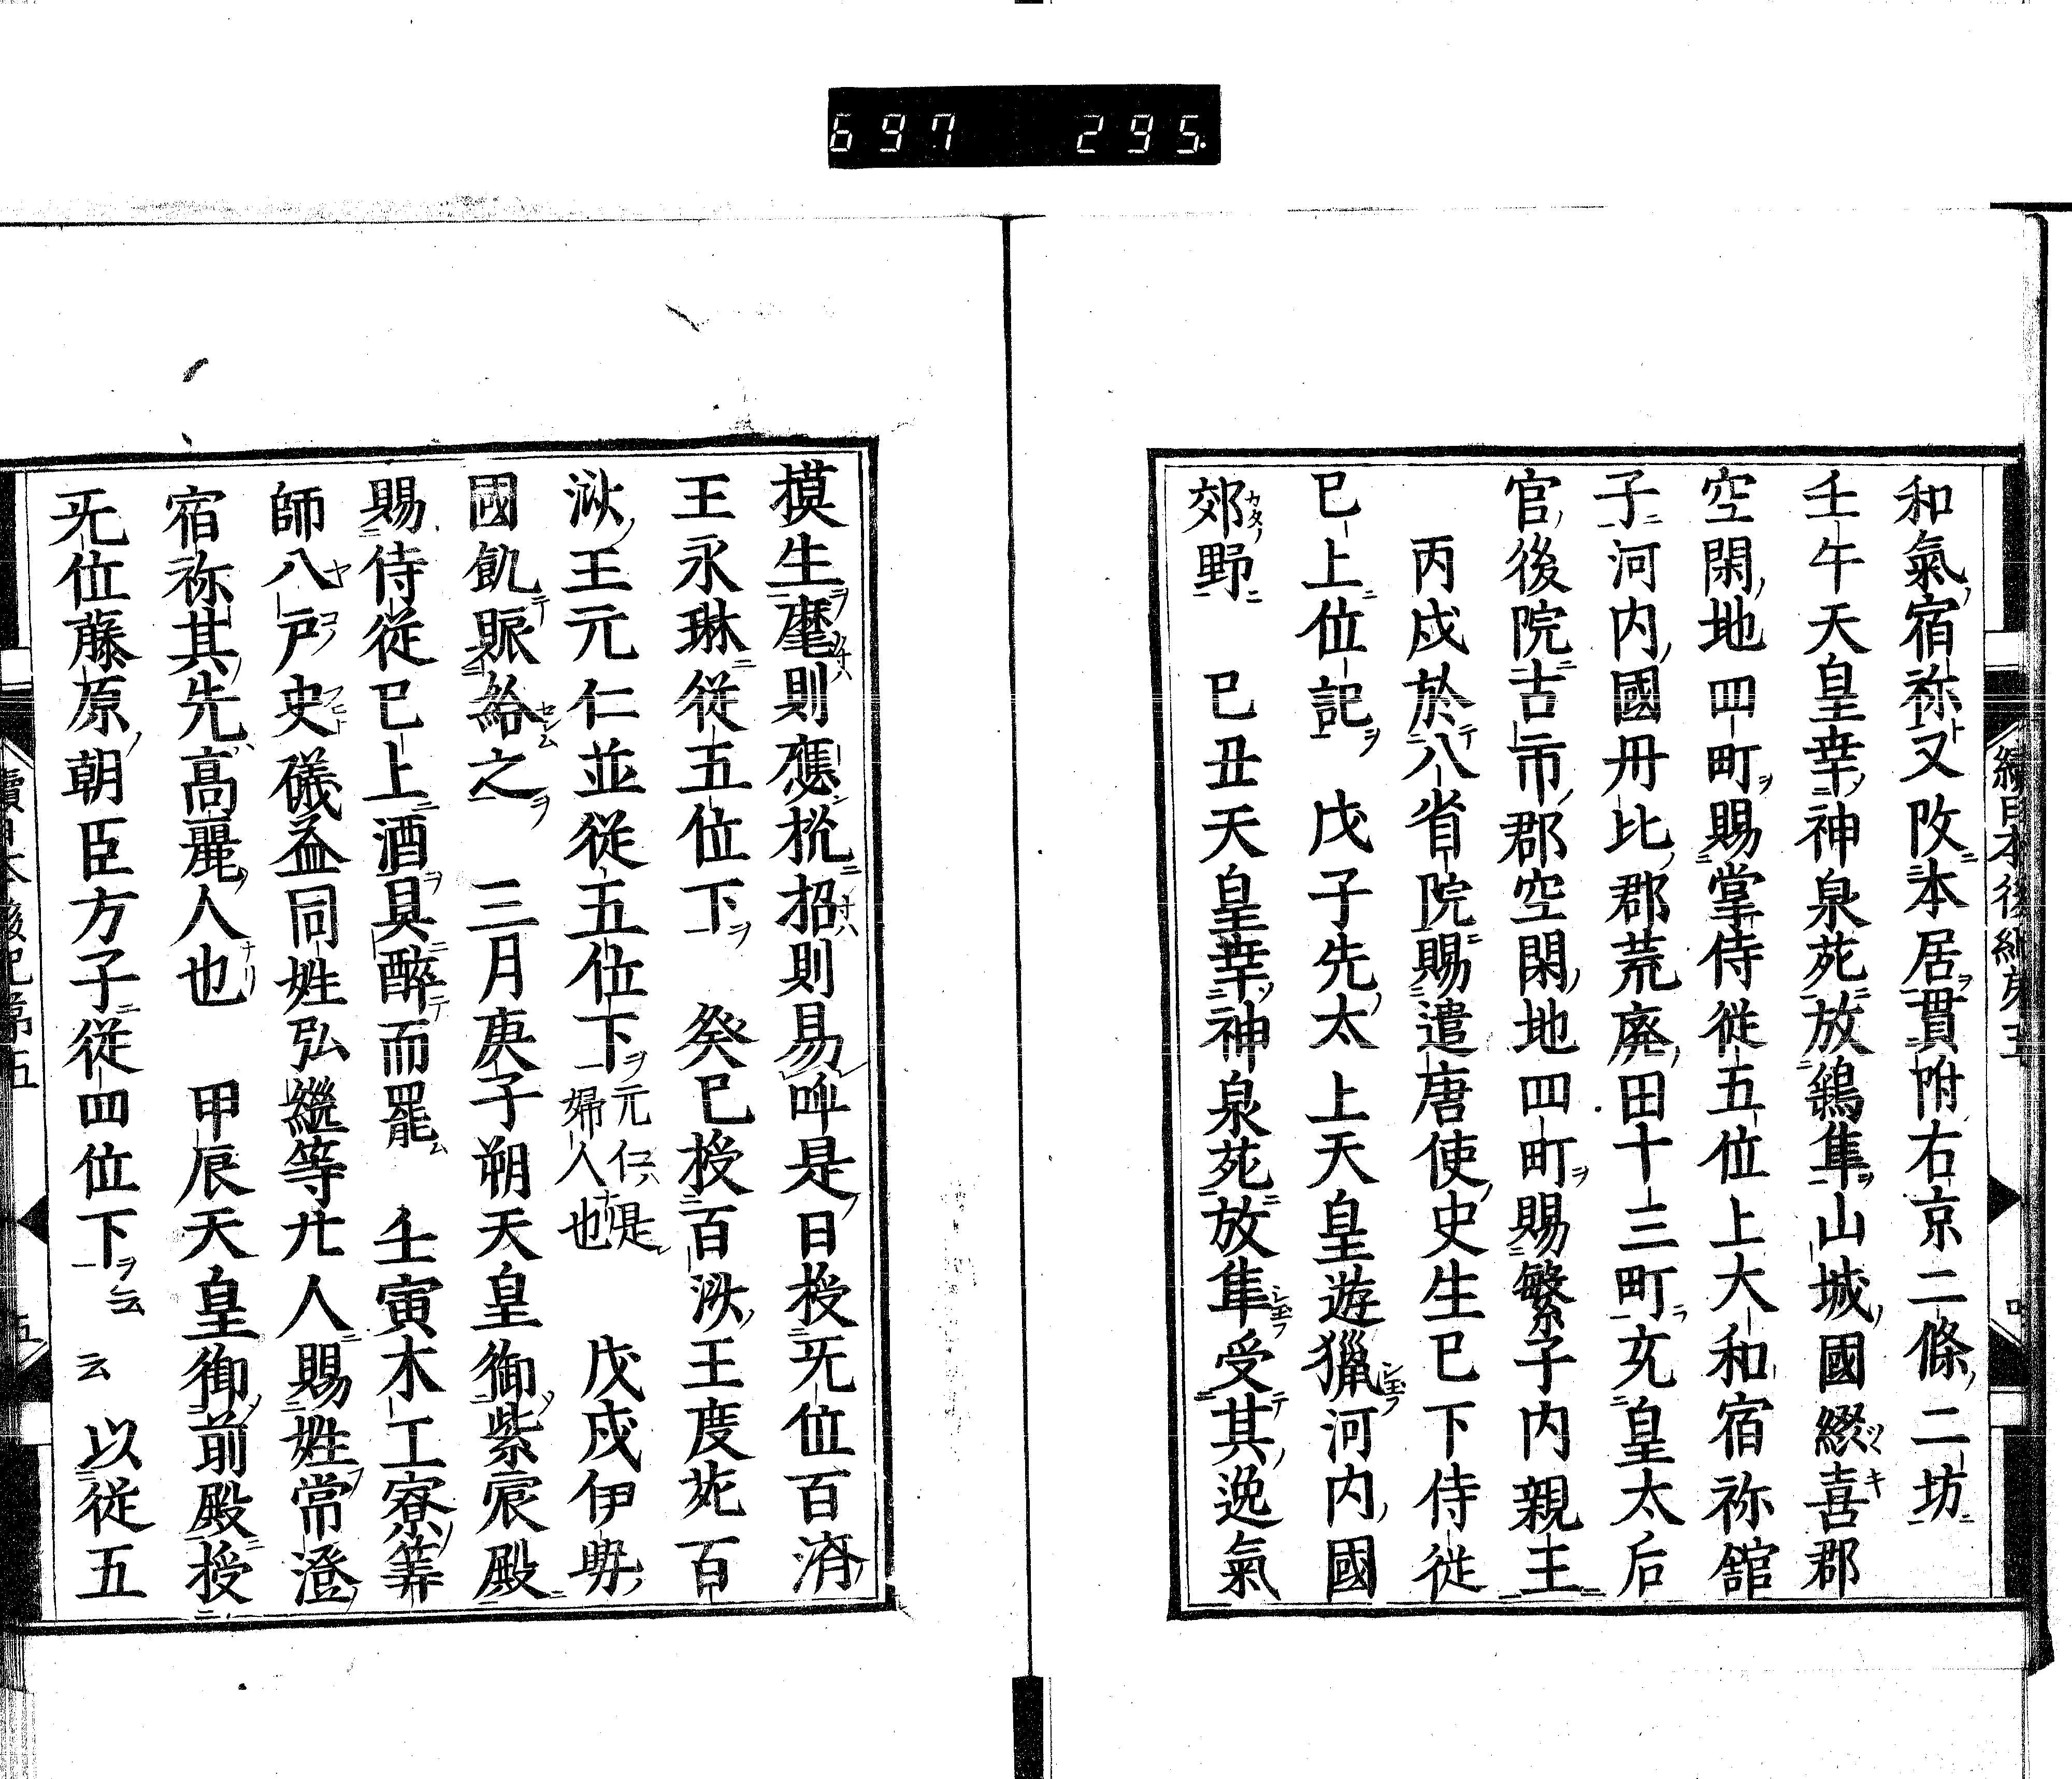 697 295.
和氣宿祢又改本居貫附右京二條二坊
壬午天皇幸神泉苑放鷂隼山城國綴喜郡
空閑地四町賜掌侍從五位上大和宿祢舘
子河内國丹比郡荒廃田十三町充皇太后
官後院古市郡空閑地四町賜繁子内親王
丙戌於八省院賜遣唐使史生已下侍從
已上位記　戊子先太上天皇遊獵河内國
郊野　己丑天皇幸神泉苑放隼受其逸氣
摸生麾則應机招則易呼是日授旡位百濟
王永琳從五位下　癸巳授百濟王度㐌百
濟王元仁並從五位下元仁是婦人也　戊戌伊與
國飢賑給之　三月庚子朔天皇御紫宸殿
賜侍從已上酒具醉而罷　壬寅木工寮筭
師八戸史礒益同姓弘繼等廿人賜姓常澄
宿祢其先高麗人也　甲辰天皇御前殿授
旡位藤原朝臣方子從四位下云云以從五